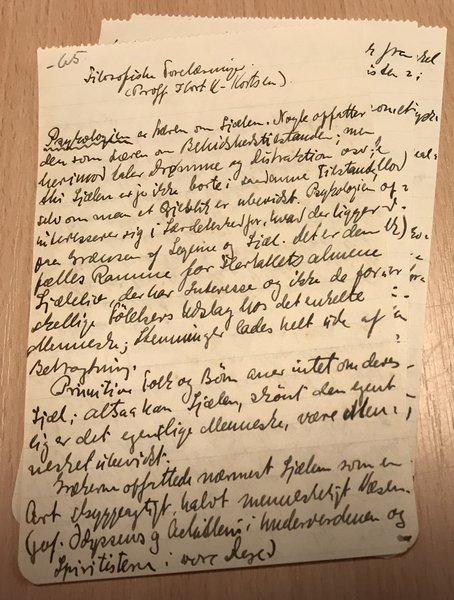 -65
Filosofiske Forelæsninger
(Proff. Kort K-Kortsen).
Psykologien er Læren om Sjælen. Nogle opfatter
den som Læren om Bevidsthedstilstande; men
herimod taler Drømme og Distraktion o.s.v.;
thi Sjælen er jo ikke borte i saadanne Tilstande,
selv om man et Øjeblik er ubevidst. Psykologien
interesserer sig i Særdeleshed for, hvad der ligger
paa Grænsen af Legeme og Sjæl. Det er den
fælles Ramme for Flertallets almene
Sjæleliv, der har Interesse og ikke de for-
skellige Følelsers Udslag hos det enkelte
Menneske; Stemninger lades helt ude af
Betragtning.
Primitive Folk og Børn aner intet om deres
Sjæl; altsaa kan Sjælen, skønt den egent-
lig er det egentlige Menneske, være Men-
nesket ubevidst.
Grækerne opfattede nærmest Sjælen som en
Art skyggeagtigt, halvt menneskeligt Væsen
(jvf. Odysseus og Achilles i Underverdenen og
Spiritisterne i vore Dage)